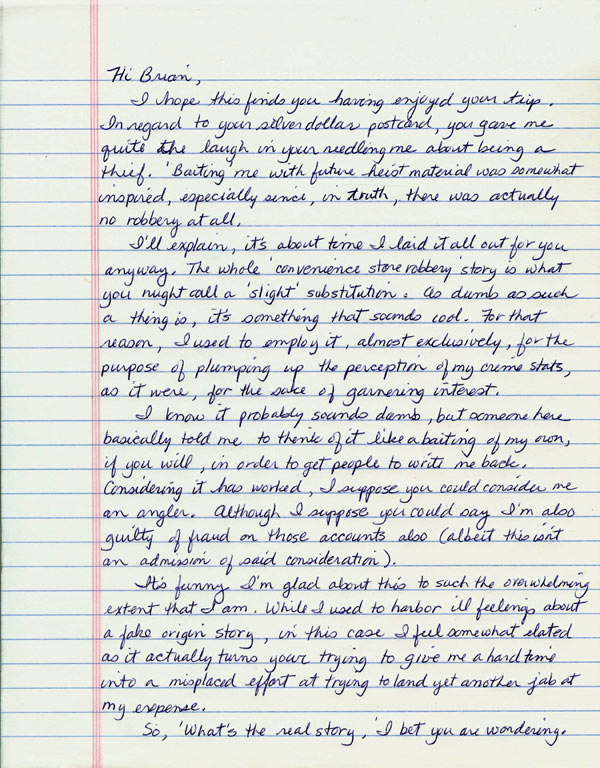 Hi Brian,
I hope this finds you having enjoyed your trip.
In regard to your silver dollar postcard, you gave me
quite the laugh in your needling me about being a
thief. 'Baiting' me with future heist material was somewhat
inspired, especially since, in truth, there was actually
no robbery at all.
I'll explain, it's about time I laid it all out for you
anyway. The whole 'convenience store robbery' story is what
you might call a 'slight' substitution. As dumb as such
a thing is, it's something that sounds cool. For that
reason, I used to employ it, almost exclusively, for the
purpose of plumping up the perception of my crime stats,
as it were, for the sake of garnering interest.
I know it probably sounds dumb, but someone here
basically told me to think of it like a baiting of my own,
if you will, in order to get people to write me back.
Considering it has worked, I suppose you could consider me
an angler. Although I suppose you could say I'm also
guilty of fraud on those accounts also (albeit this isn't
an admission of said consideration).
It's funny I'm glad about this to such the overwhelming
extent that I am. While I used to harbor ill feelings about
a fake origin story, in this case I feel somewhat elated
as it actually turns your trying to give me a hard time
into a misplaced effort at trying to land yet another jab at
my expense.
So, 'What's the real story,' I bet you are wondering.